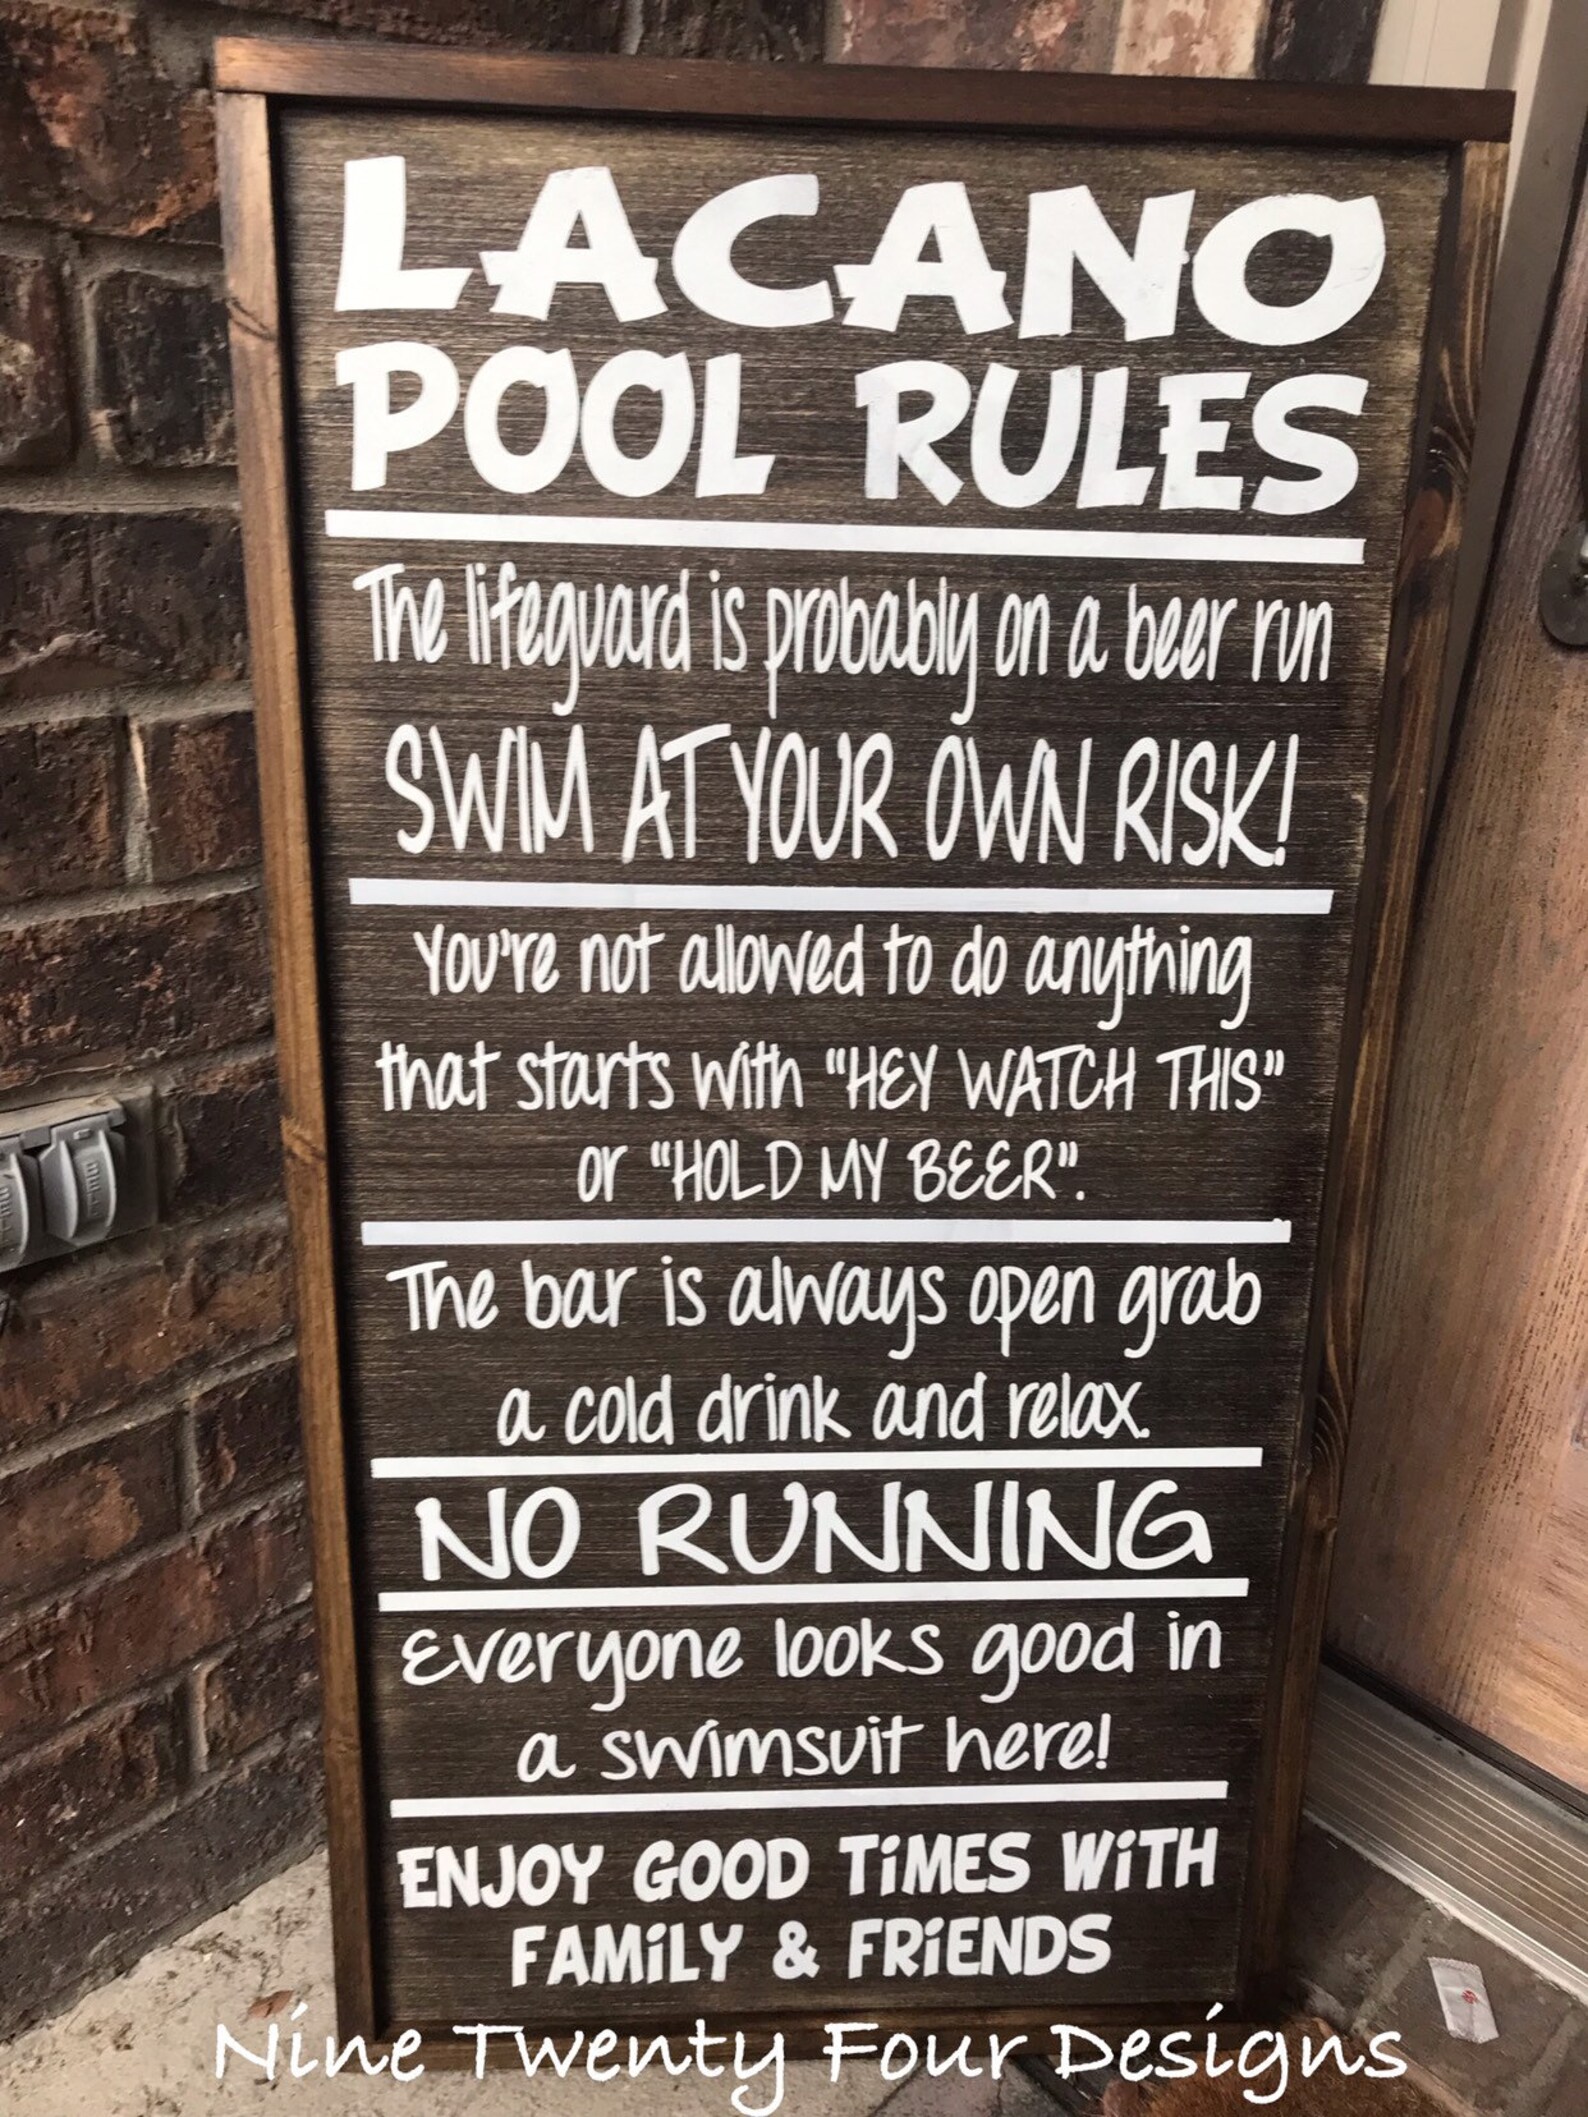 LACANO
POOL RULES
The lifeguard is probably on a beer run
SWIM AT YOUR OWN RISK!
You're not allowed to do anything
that starts with "HEY WATCH THIS"
or "HOLD MY BEER".
The bar is always open grab
a cold drink and relax.
NO RUNNING
Everyone looks good in
a swimsuit here!
ENJOY GOOD TiMES WiTH
FAMiLY & FRiENDS
Nine Twenty Four Designs